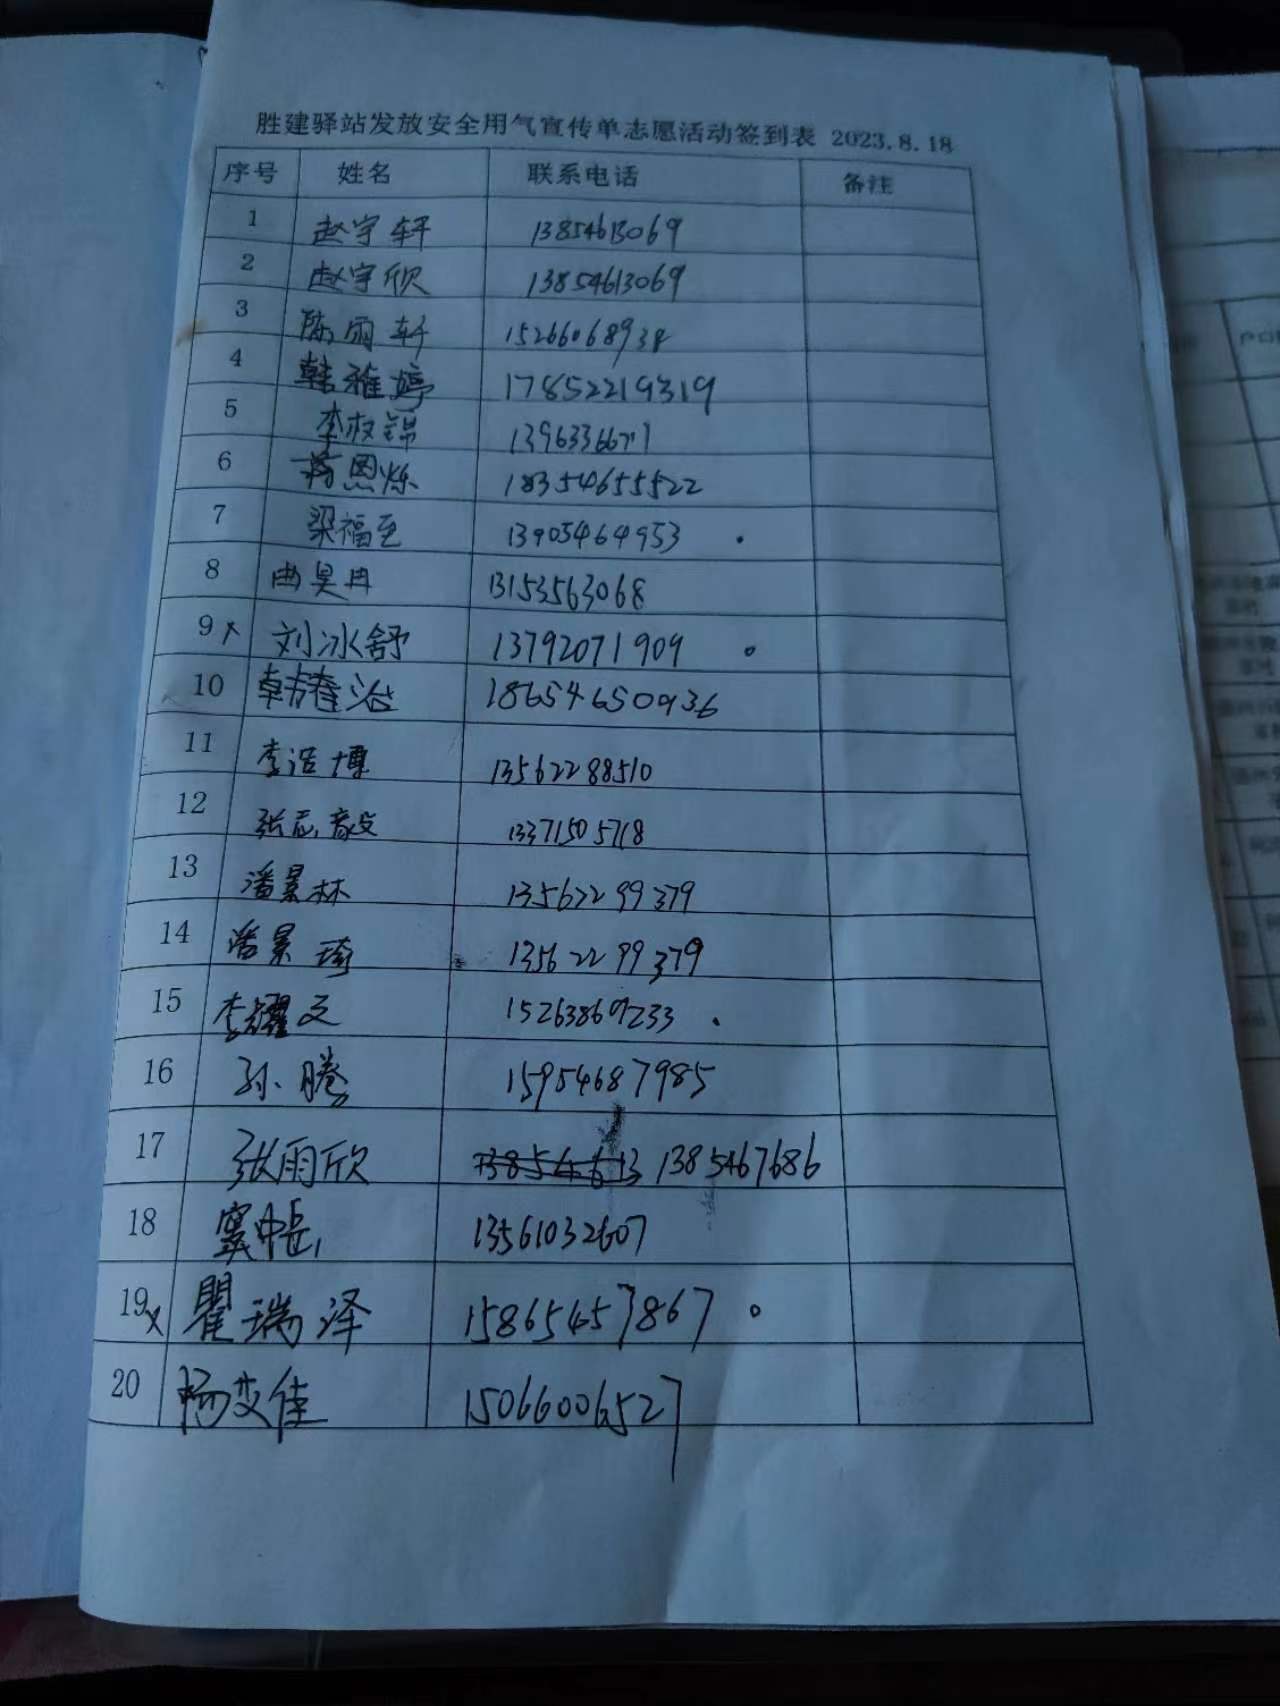 胜建驿站发放安全用气宣传单志愿活动签到表 2023.8.18
序号 姓名 联系电话 备注
1 赵宇轩 13854613069
2 赵宇欣 13854613069
3 陈雨轩 15266068938
4 韩雅婷 17852219319
5 李权锦
6 蒋恩烁 18354655522
7 梁福至 13905464953
8 曲昊冉 13153563068
9 刘冰舒 13792071909
10 韩春 18654650936
11 李浩博 13562288510
12 张志毅 13371505718
13 潘景林 13562299379
14 潘景琦 13562299379
15 李耀文 15263869233
16 孙腾 15954687985
17 张雨欣 1385467686
18 窦中岳 13561032607
19 瞿瑞泽 15865457867
20 杨变佳 15066006527